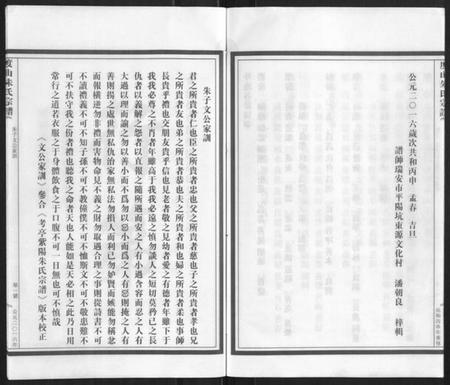 公元二〇一六歲次共和丙申 孟春 吉旦
譜師瑞安市平陽坑東源文化村 潘朝良 梓輯
朱子文公家訓
君之所貴者仁也臣之所貴者忠也父之所貴者慈也子之所貴者孝也兄
之所貴者友也弟之所貴者恭也夫之所貴者和也婦之所貴者柔也事師
長貴乎禮也交朋友貴乎信也見老者敬之見幼者愛之有德者年雖下于
我我必尊之不肖者年雖高于我我必遠之慎勿談人之短切莫矜己之長
仇者以義解之怨者以直報之隨所遇而安之人有小過含容而忍之人有
大過以理而諭之勿以善小而不為勿以惡小而為之人有惡則掩之人有
善則揚之處世無私仇治家無私法勿損人而利己勿妒賢而嫉能勿稱忿
而報橫逆勿非禮而害物命見不義之財勿取遇合理之事則從詩書不可
不讀禮義不可不知子孫不可不教僮僕不可不恤斯文不可不敬患難不
可不扶守我之份者禮也聽我之命者天也人能如是天必相之此乃日用
常行之道若衣服之于身體飲食之于口腹不可一日無也可不慎哉
《文公家訓》參合《考亭紫陽朱氏宗譜》版本校正
度山朱氏宗譜
朱子文公家訓
第一號
公元二〇一六年